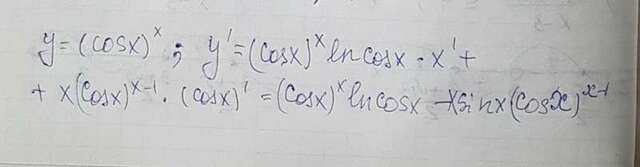 y = (cosx)^x ; y' = (cosx)^x ln cosx · x' +
+ x(cosx)^{x-1} · (cosx)' = (cosx)^x ln cosx - x sin x (cosx)^{x-1}